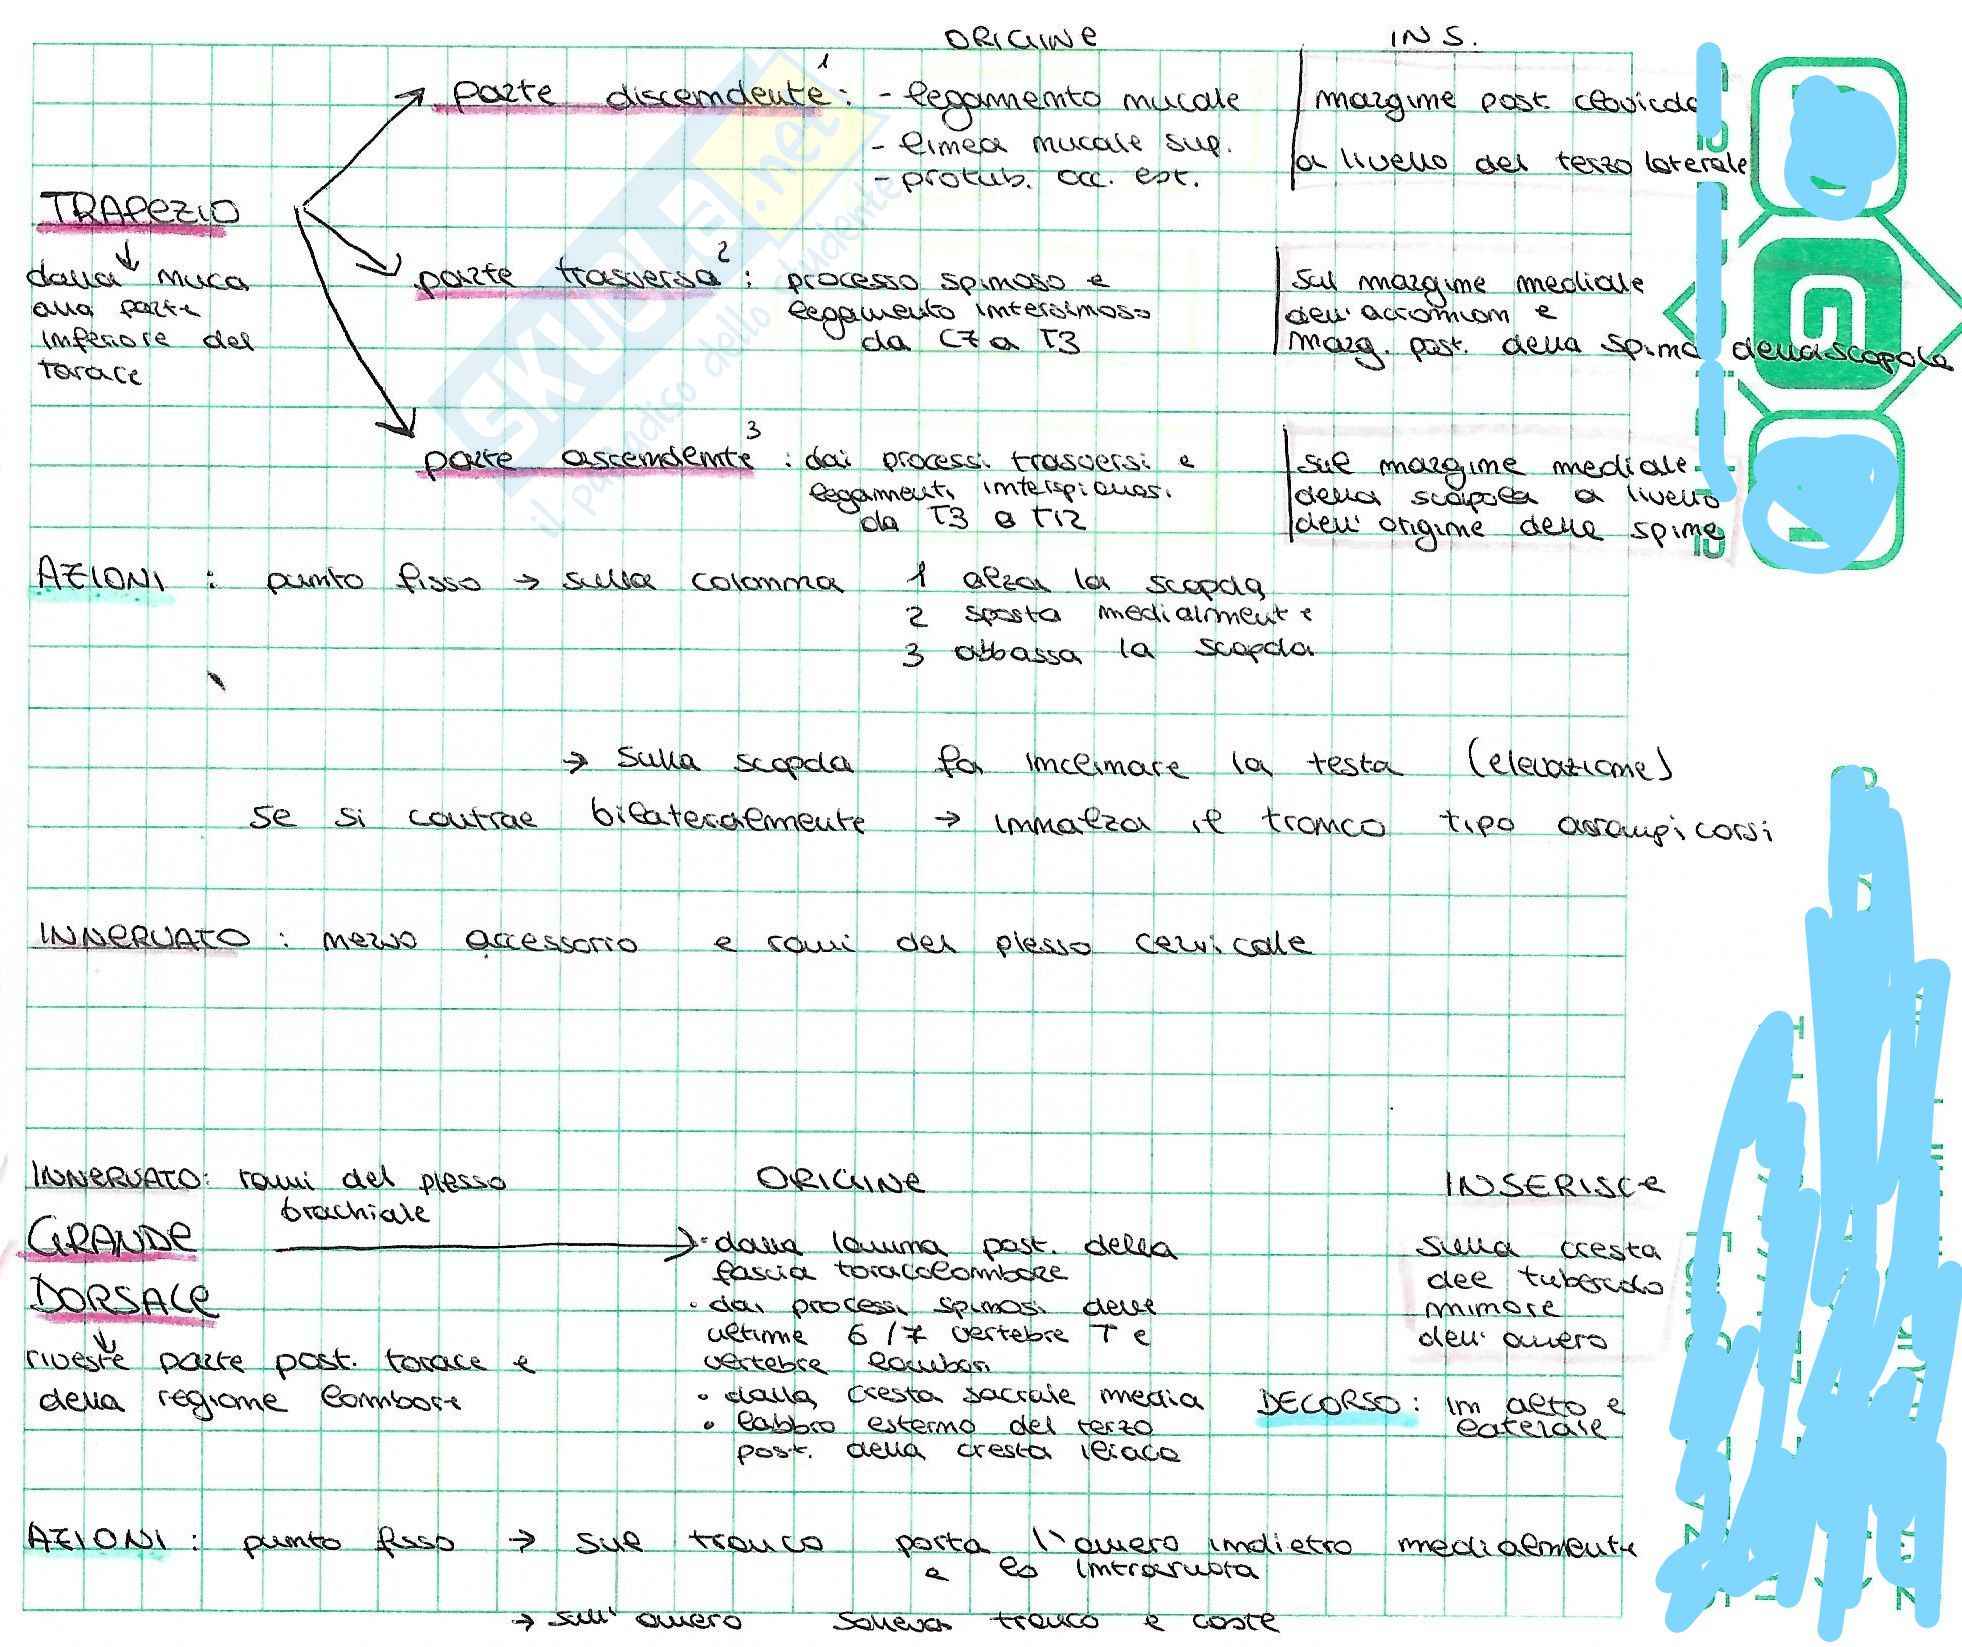 ORIGINE INS.
parte discendente¹ : - legamento nucale margine post. clavicola
- linea nucale sup. a livello del terzo laterale
- protub. occ. est.
TRAPEZIO
dalla nuca
alla parte
inferiore del
torace
parte trasversa² : processo spinoso e sul margine mediale
legamento interspinoso dell'acromion e
da C7 a T3 marg. post. della spina della scapola
parte ascendente³ : dai processi trasversi e sul margine mediale
legamenti interspinosi della scapola a livello
da T3 a T12 dell'origine delle spine
AZIONI : punto fisso → sulla colonna 1 alza la scapola
2 sposta medialmente
3 abbassa la scapola
→ sulla scapola fa inclinare la testa (elevazione)
se si contrae bilateralmente → innalza il tronco tipo arrampicarsi
INNERVATO : nervo accessorio e rami del plesso cervicale
INNERVATO: rami del plesso ORIGINE INSERISCE
brachiale
GRANDE
DORSALE
riveste parte post. torace e
della regione lombare
· dalla lamina post. della
fascia toracolombare
· dai processi spinosi delle
ultime 6/7 vertebre T e
vertebre lombari
· dalla cresta sacrale media
· labbro esterno del terzo
post. della cresta iliaca
sulla cresta
del tubercolo
minore
dell'omero
DECORSO : in alto e
laterale
AZIONI : punto fisso → sul tronco porta l'omero indietro medialmente
e lo intraruota
→ sull'omero solleva tronco e coste
SKUOLA.net
il paradiso dello studente